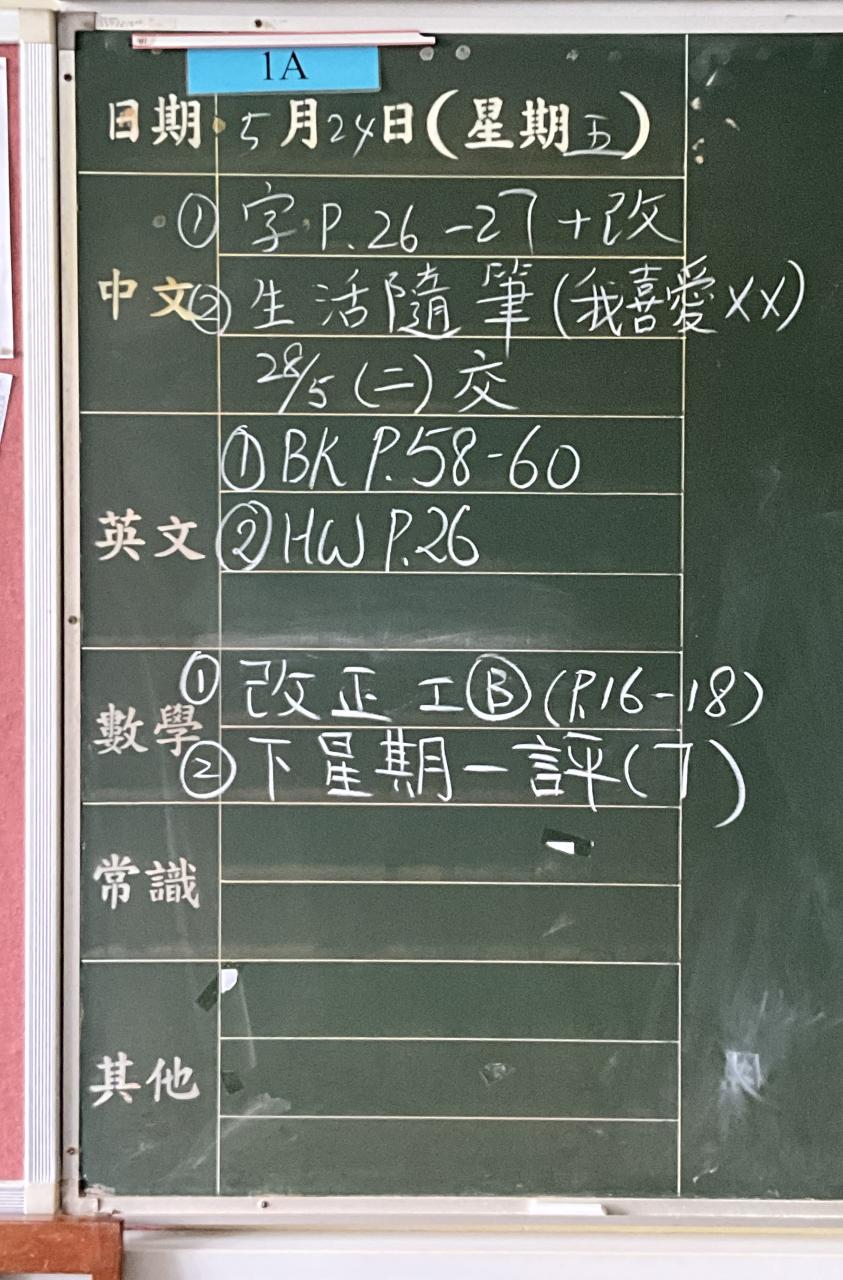 1A
日期 5月24日(星期五)
① 字 P.26-27+改
中文 ② 生活隨筆(我喜愛XX)
28/5 (二) 交
① BK P.58-60
英文 ② HW P.26
① 改正 工Ⓑ (P.16-18)
數學 ② 下星期一評(7)
常識
其他